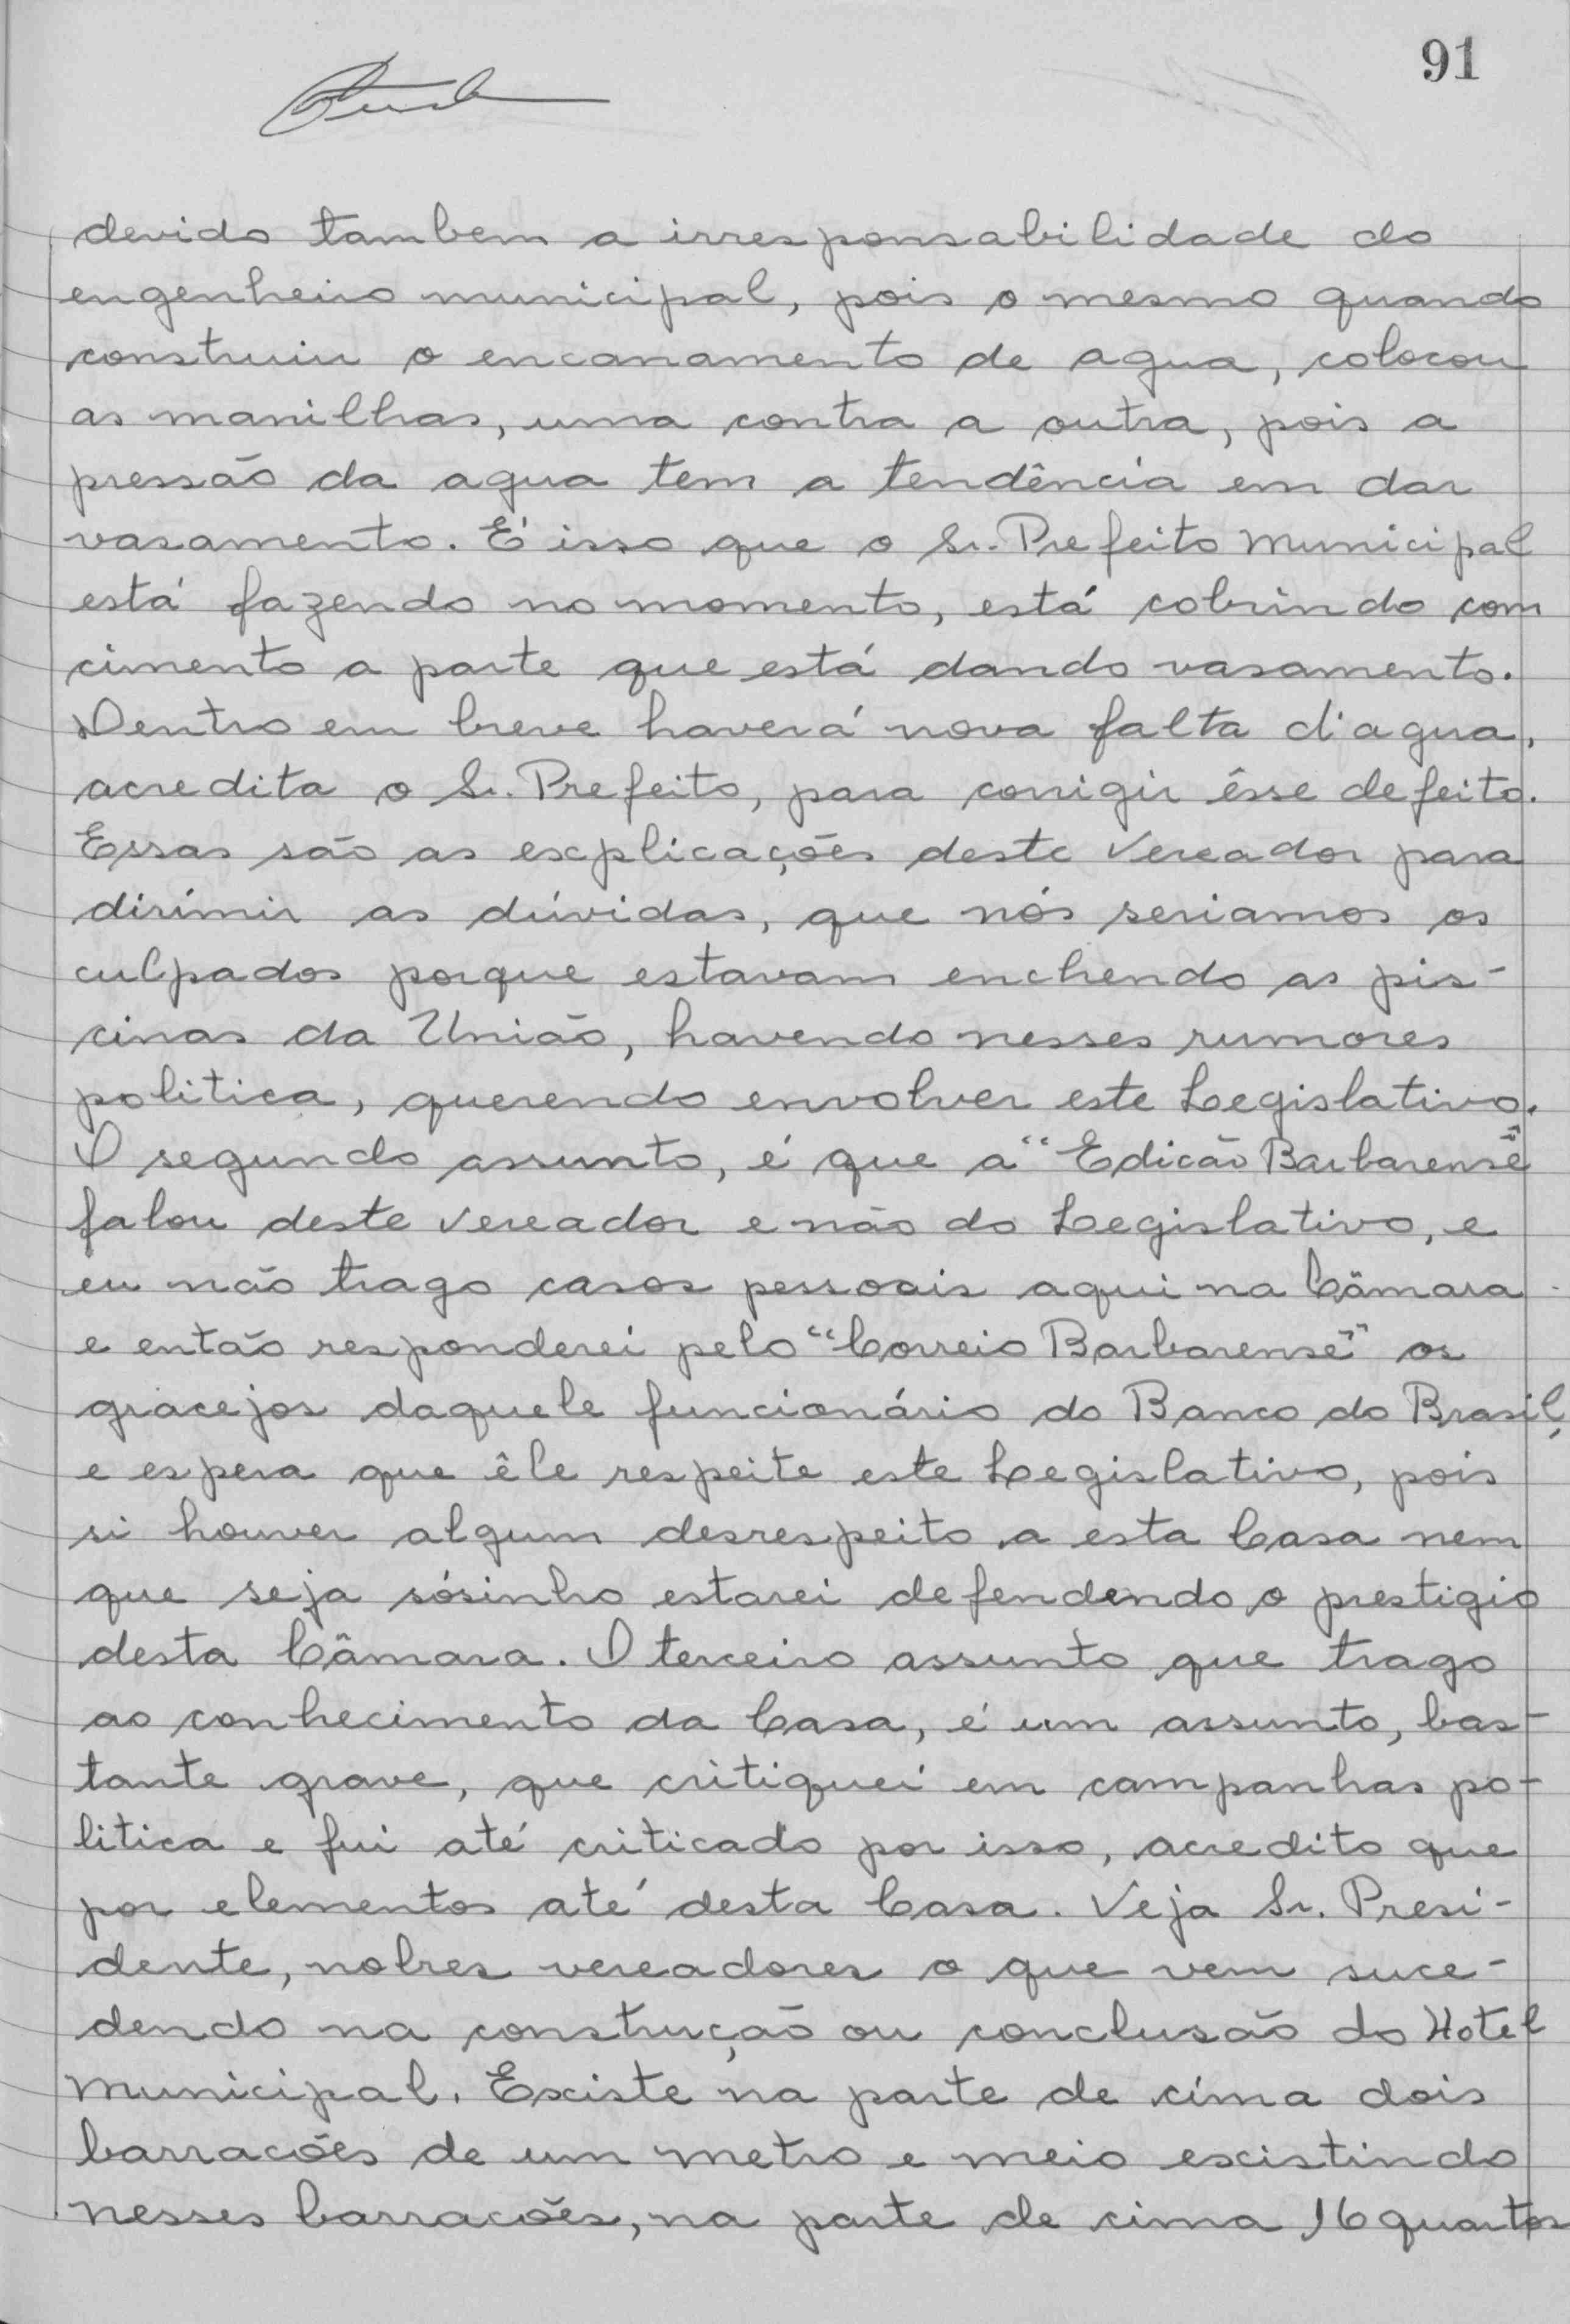 91
devido tambem a irresponsabilidade do
engenheiro municipal, pois o mesmo quando
construiu o encanamento de agua, colocou
as manilhas, uma contra a outra, pois a
pressão da agua tem a tendência em dar
vasamento. E' isso que o Sr. Prefeito Municipal
está fazendo no momento, está cobrindo com
cimento a parte que está dando vasamento.
Dentro em breve haverá nova falta d'agua,
acredita o Sr. Prefeito, para corrigir êsse defeito.
Essas são as explicações deste Vereador para
dirímir as dúvidas, que nós seriamos os
culpados porque estavam enchendo as pis-
cinas da União, havendo nesses rumores
politica, querendo envolver este Legislativo.
O segundo assunto, é que a "Edicão Barbarense"
falou deste Vereador e não do Legislativo, e
eu não trago casos pessoais aqui na Câmara
e então responderei pelo "Correio Barbarense" os
gracejos daquele funcionário do Banco do Brasil,
e espera que êle respeite este Legislativo, pois
si houver algum desrespeito a esta Casa nem
que seja sósinho estarei defendendo o prestigio
desta Câmara. O terceiro assunto que trago
ao conhecimento da Casa, é um assunto, bas-
tante grave, que critiquei em campanhas po-
litica e fui até criticado por isso, acredito que
por elementos até desta Casa. Veja Sr. Presi-
dente, nobres vereadores o que vem suce-
dendo na construção ou conclusão do Hotel
Municipal. Existe na parte de cima dois
barracões de um metro e meio existindo
nesses barracões, na parte de cima 16 quartos